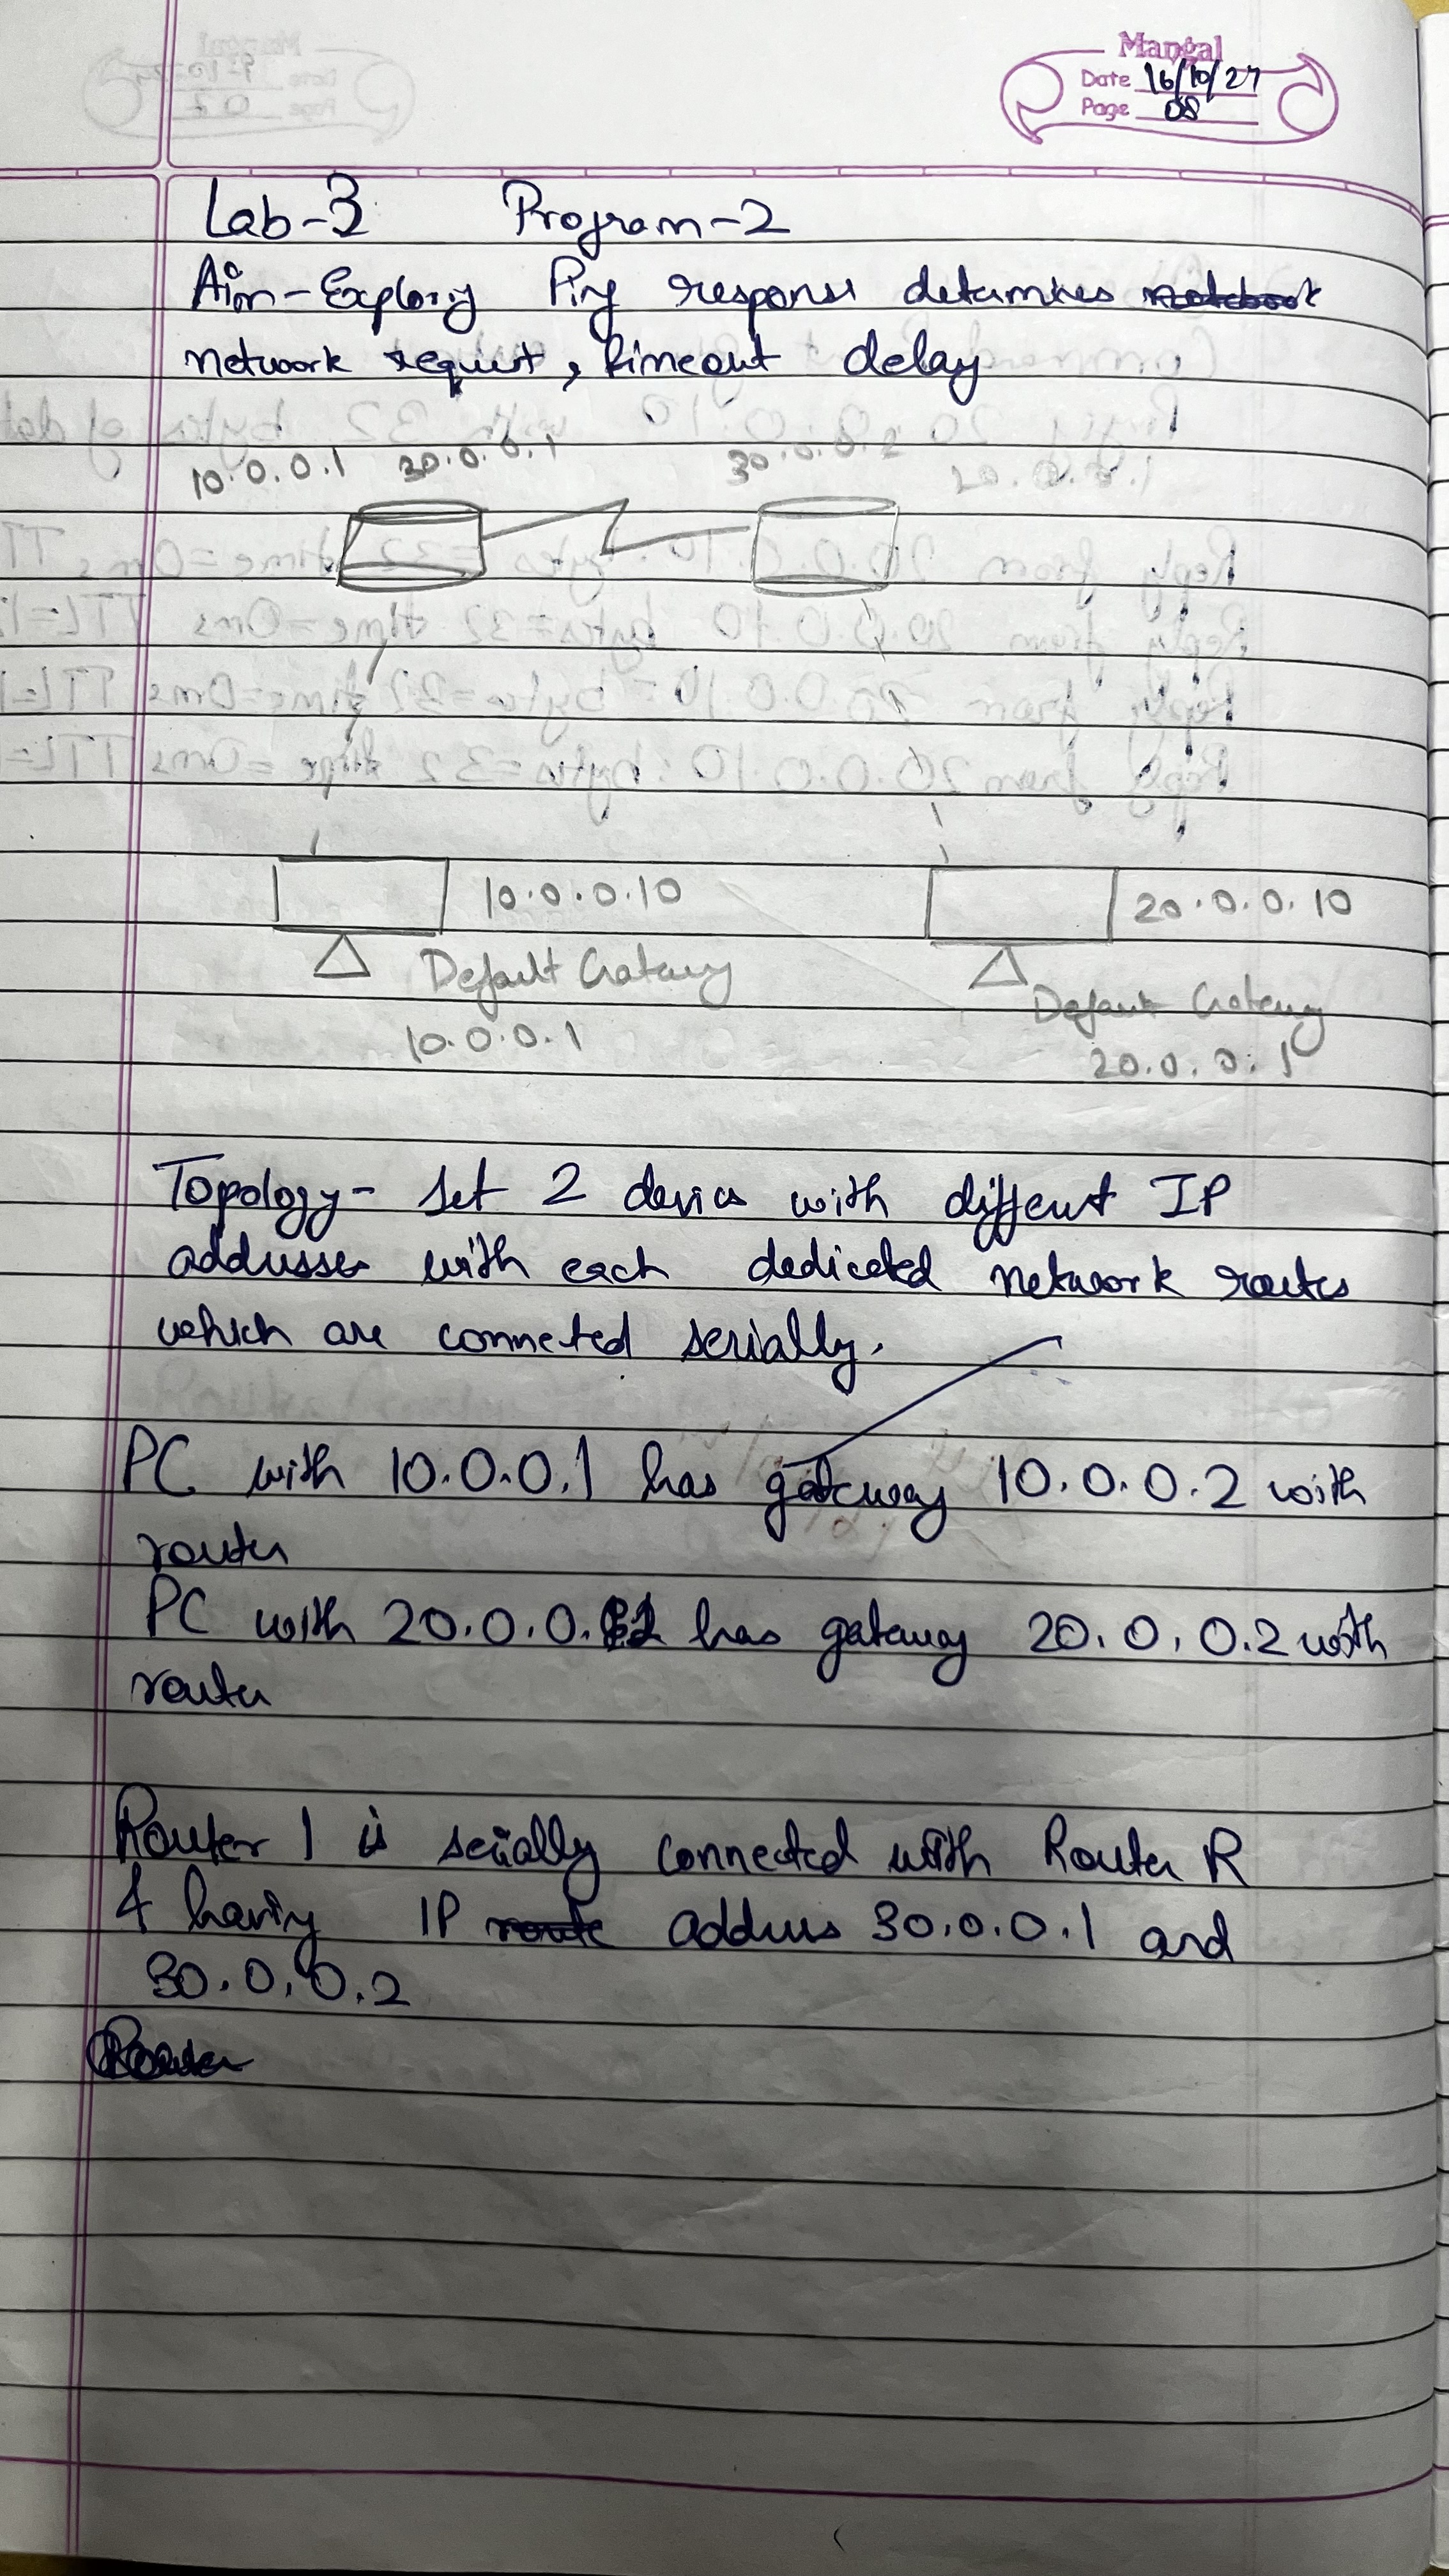 Mangal
Date 16/10/24
Page 08
Lab-3 Program-2
Aim-Explorig Ping response determines
network request, timeout delay
10.0.0.1 30.0.0.1 30.0.0.2 20.0.0.1
10.0.0.10 20.0.0.10
Default Gateway Default Gateway
10.0.0.1 20.0.0.1
Topology- Set 2 devics with different IP
addresses with each dedicated network routes
which are conneted serially.
PC with 10.0.0.1 has gateway 10.0.0.2 with
router
PC with 20.0.0.1 has gateway 20.0.0.2 with
router
Router 1 is serially connected with Router R
& having IP address 30.0.0.1 and
30.0.0.2